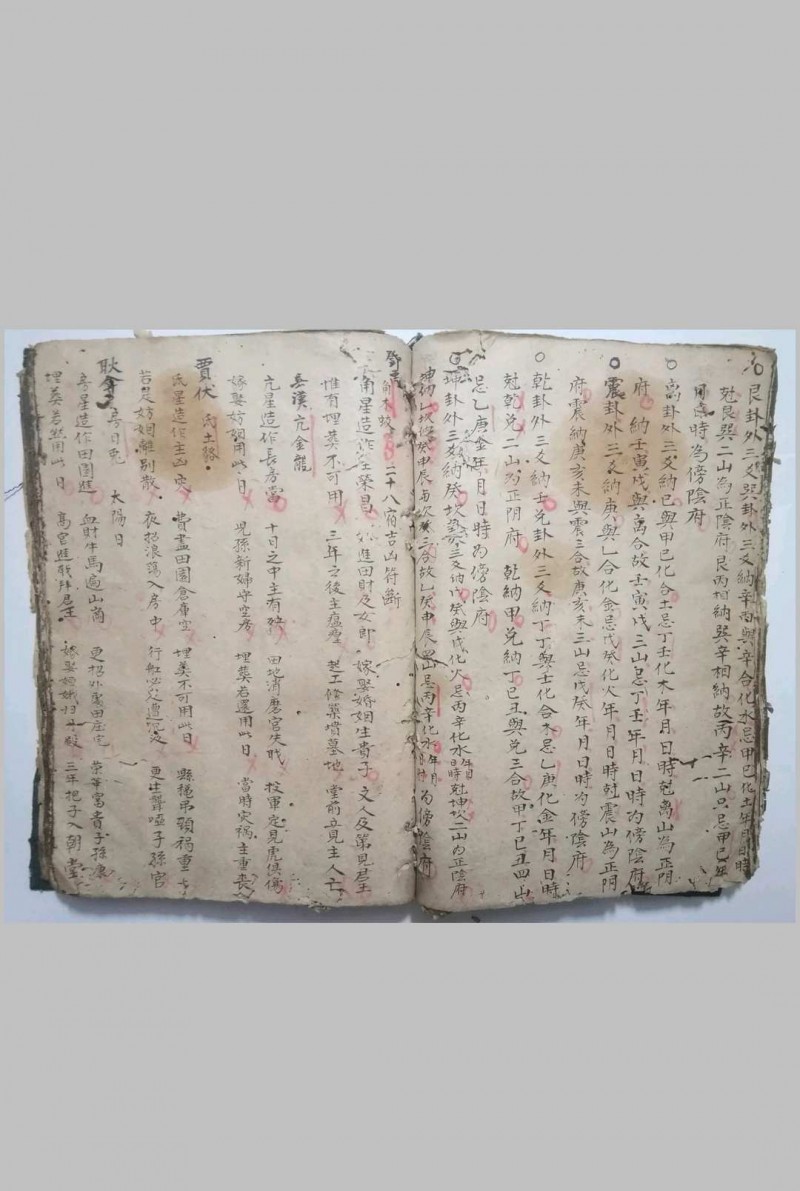 艮卦外三爻巽卦外三爻納辛丙與辛合化水忌甲己化土年月日時
尅艮巽二山為正陰府艮丙相納巽辛相納故丙辛二山只忌甲己年
月日時為傍陰府
離卦外三爻納己與甲己化合土忌丁壬化木年月日時尅离山為正陰
府 納壬寅戌與离合故壬寅戌三山忌丁壬年月日時為傍陰府
震卦外三爻納庚與乙合化金忌戊癸化火年月日時尅震山為正陰
府震納庚亥未與震三合故庚亥未三山忌戊癸年月日時為傍陰府
乾卦外三爻納壬兌卦外三爻納丁丁與壬化合木忌乙庚化金年月日時
尅乾兌二山為正阴府 乾納甲兌納丁巳丑與兌三合故甲丁巳丑四山
忌乙庚金年月日時為傍陰府
坤卦外三爻納癸坎卦外三爻納戊戊癸與戊化火忌丙辛化水年月日時尅坤坎二山為正陰府
坤納乙坎納癸申辰與坎三合故乙癸申辰四山忌丙辛化水年月日時為傍陰府
二十八宿吉凶符斷
角木蛟
角星造作主榮昌 外進田財及女郎 嫁娶婚姻生貴子 文人及第見君王
惟有埋葬不可用 三年之後主瘟瘟 起工修築墳墓地 堂前立見主人亡
吳漢 亢金龍
亢星造作長房當 十日之中主有殃 田地消磨官失職 投軍定見虎狼傷
嫁娶婚姻用此日 児孫新婦守空房 埋葬若還用此日 當時灾禍主重喪
賈伏 氐土貉
氐星造作主凶灾 費盡田園倉庫空 埋葬不可用此日 縣繩吊頸禍重
若是婚姻離別散 夜招浪蕩入房中 行船必定遭沉没 更生聾哑子孫窮
耿弇 房日兎 太陽日
房星造作田園進 血財牛馬遍山崗 更招外處田庄宅 榮華富貴子孫康
埋葬若然用此日 高官進職拜君王 嫁娶嫦娥 三年抱子入朝堂